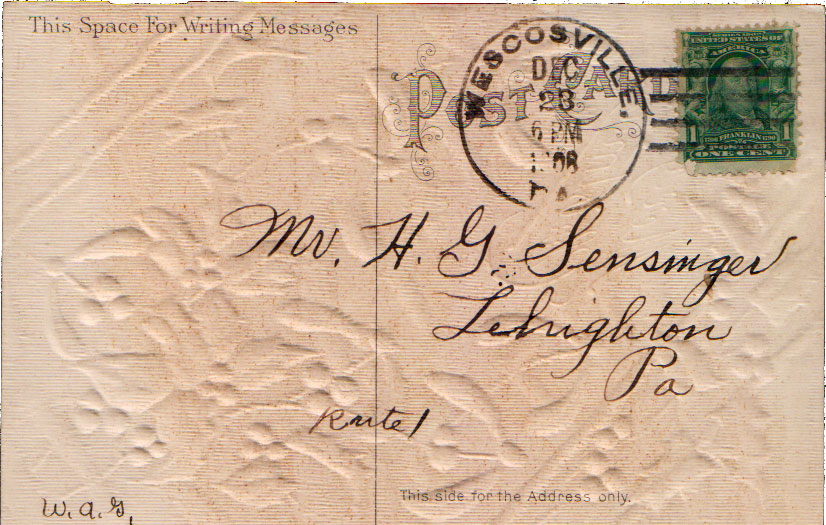 This Space For Writing Messages
POST CARD
WESCOSVILLE,
DEC
23
6 PM
1908
PA.
SERIES 1902
UNITED STATES OF
AMERICA
1 FRANKLIN 1
POSTAGE
ONE CENT
Mr. H. G. Sensinger
Lehighton
Pa
Route 1
This side for the Address only.
W. A. G.